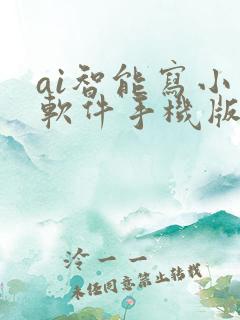 ai智能寫小
軟件手機版
泠一一
未经同意禁止转载